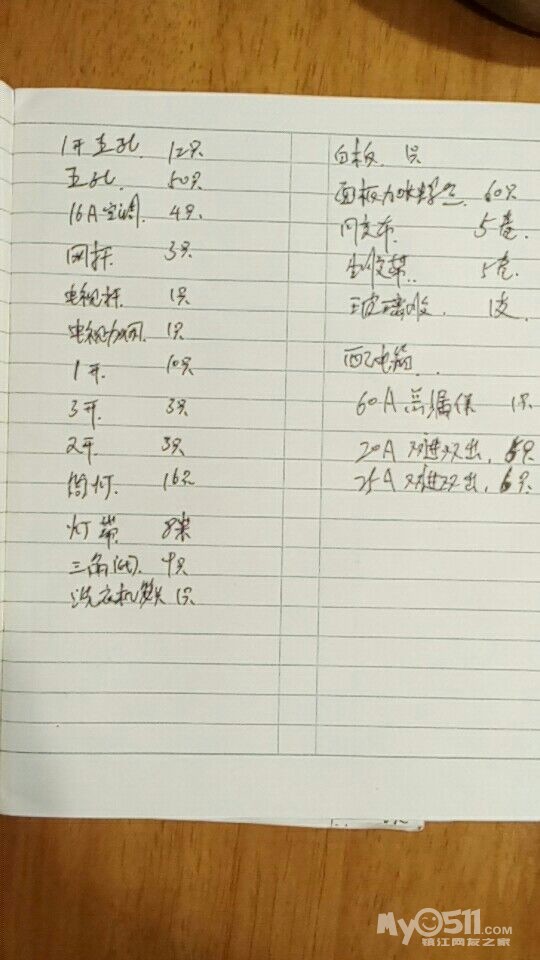 1开五孔. 12只
五孔. 50只
16A空调. 4只.
网插 3只
电视插 1只
电视加网. 1只.
1开 10只
3开. 3只
2开 3只
筒灯. 16只
灯带 8米
三角阀. 9只
洗衣机 1只
白板. 1只
面板加长螺丝 60只
网文布. 5卷.
生胶带 5卷.
玻璃胶. 1支
配电箱..
60A总漏保 1只
20A双进双出. 5只
25A双进双出. 6只
My0511.COM
镇江网友之家